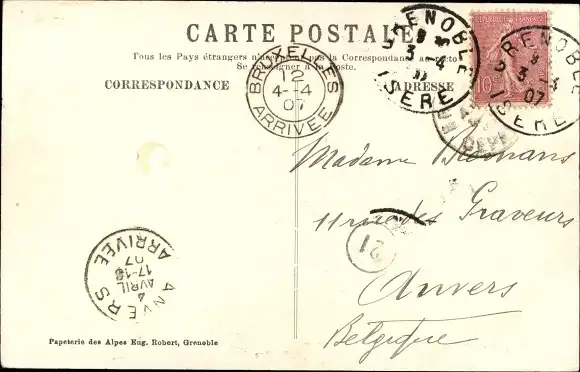 CARTE POSTALE
Tous les Pays étrangers n'acceptent pas la Correspondance au recto
Se renseigner à la Poste.
CORRESPONDANCE
ADRESSE
RÉPUBLIQUE FRANÇAISE
10
GRENOBLE
3 - 4
07
ISERE
GRENOBLE
3 - 4
07
ISERE
BRUXELLES
12
4--4
07
ARRIVÉE
Madame
11 rue des Graveurs
Anvers
Belgique
21
ANVERS
4
AVRIL
17-18
07
ARRIVÉE
Papeterie des Alpes Eug. Robert, Grenoble